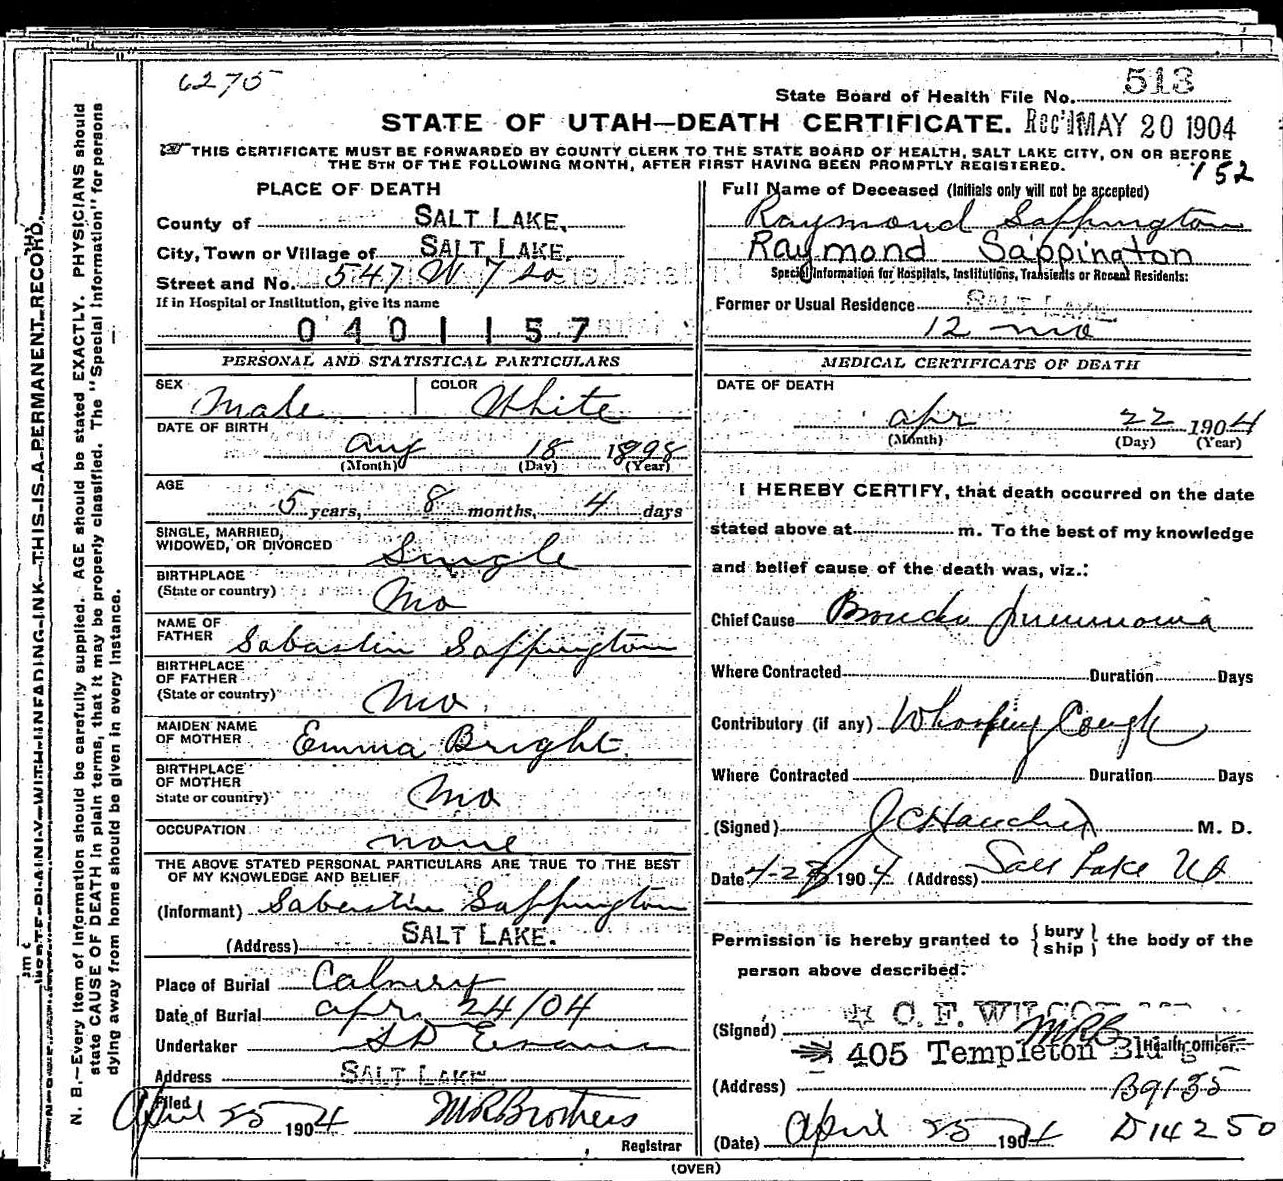 6275
State Board of Health File No. 513
STATE OF UTAH—DEATH CERTIFICATE. Rec'd MAY 20 1904
THIS CERTIFICATE MUST BE FORWARDED BY COUNTY CLERK TO THE STATE BOARD OF HEALTH, SALT LAKE CITY, ON OR BEFORE
THE 5TH OF THE FOLLOWING MONTH, AFTER FIRST HAVING BEEN PROMPTLY REGISTERED.
152
PLACE OF DEATH
County of SALT LAKE.
City, Town or Village of SALT LAKE.
Street and No. 547 W 7 So
If in Hospital or Institution, give its name
0401157
PERSONAL AND STATISTICAL PARTICULARS
SEX Male COLOR White
DATE OF BIRTH
Aug 18 1898
(Month) (Day) (Year)
AGE
5 years, 8 months, 4 days
SINGLE, MARRIED,
WIDOWED, OR DIVORCED Single
BIRTHPLACE
(State or country) Mo
NAME OF
FATHER Sabastin Sappington
BIRTHPLACE
OF FATHER
(State or country) Mo.
MAIDEN NAME
OF MOTHER Emma Bright.
BIRTHPLACE
OF MOTHER
State or country) Mo
OCCUPATION none
THE ABOVE STATED PERSONAL PARTICULARS ARE TRUE TO THE BEST
OF MY KNOWLEDGE AND BELIEF
(Informant) Sabastin Sappington
(Address) SALT LAKE.
Place of Burial Calvary
Date of Burial Apr. 24/04
Undertaker S D Evans
Address SALT LAKE
Filed
April 25 1904 M R Brothers
Registrar
Full Name of Deceased (Initials only will not be accepted)
Raymond Sappington
Raymond Sappington
Special Information for Hospitals, Institutions, Transients or Recent Residents:
Former or Usual Residence SALT LAKE
12 mo
MEDICAL CERTIFICATE OF DEATH
DATE OF DEATH
Apr 22 1904
(Month) (Day) (Year)
I HEREBY CERTIFY, that death occurred on the date
stated above at m. To the best of my knowledge
and belief cause of the death was, viz.:
Chief Cause Broncho pneumonia
Where Contracted Duration Days
Contributory (if any) Whooping Cough
Where Contracted Duration Days
(Signed) M. D.
Date 1904 (Address) Salt Lake Ut
Permission is hereby granted to {bury
ship} the body of the
person above described.
(Signed) C. F. WILCOX MRB
405 Templeton Bldg Health Officer.
(Address) B9135
(Date) April 25 1904 D14250
(OVER)
N. B.—Every item of information should be carefully supplied. AGE should be stated EXACTLY. PHYSICIANS should
state CAUSE OF DEATH in plain terms, that it may be properly classified. The "Special Information" for persons
dying away from home should be given in every instance.
WRITE PLAINLY WITH UNFADING INK—THIS IS A PERMANENT RECORD.